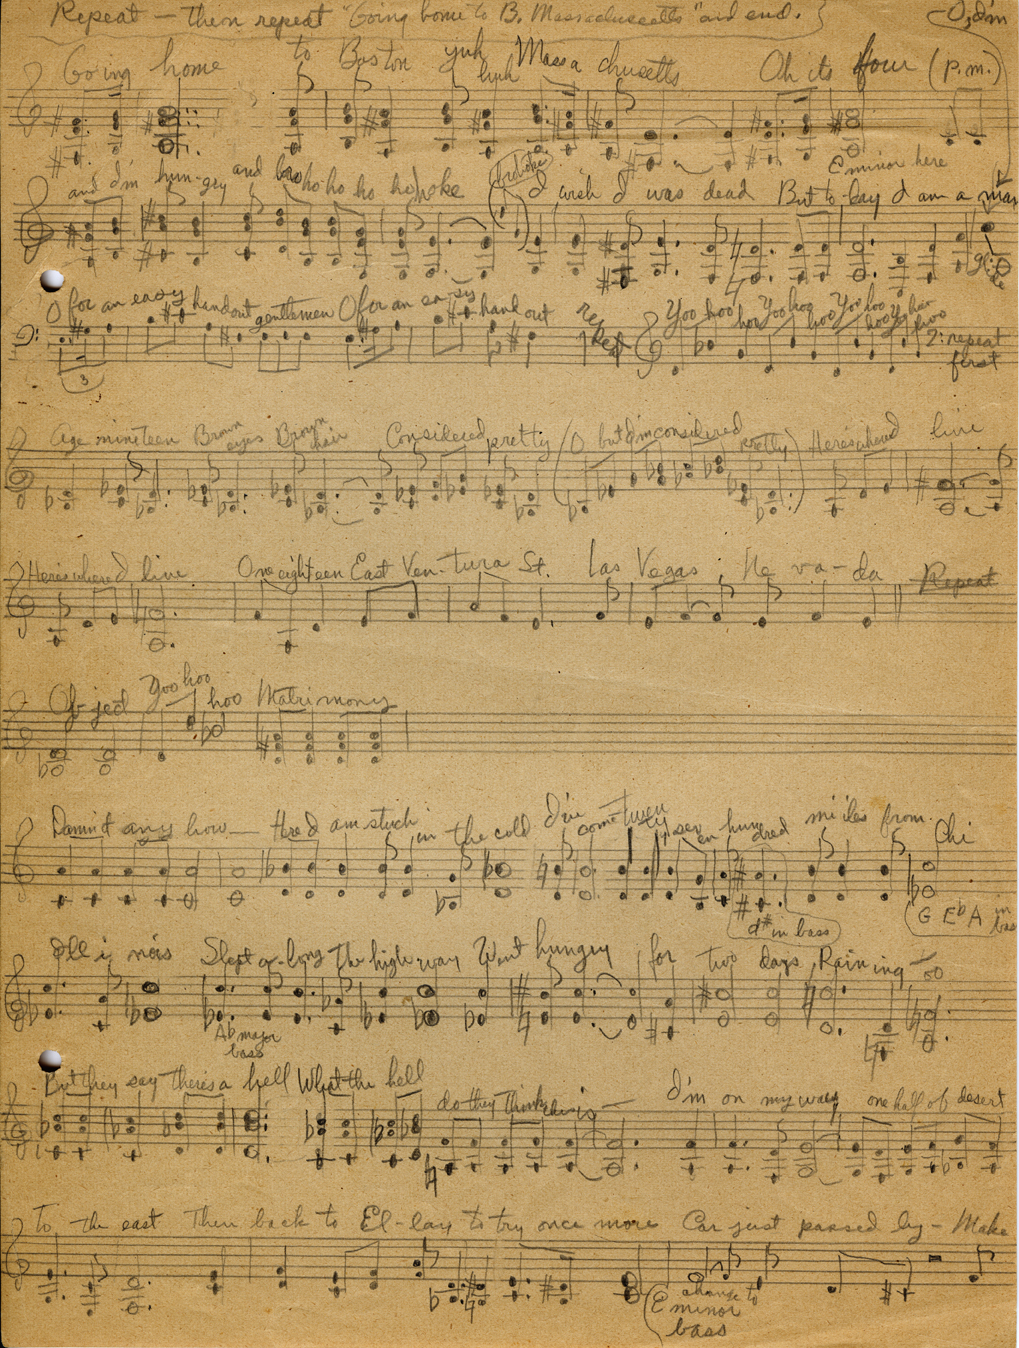 Repeat — then repeat "Going home to B. Massachusetts" and end.
O, I'm
Going home to Boston yuh huh Massachusetts Oh its four (p.m.)
E minor here
and I'm hun-gry and bro ho ho ho ho, hoke I wish I was dead But to-day I am a man
O for an easy handout gentlemen O for an ea-sy hand out repeat Yoo hoo hoo Yoo hoo hoo Yoo hoo hoo Yoo hoo hoo
repeat first
3
Age nineteen Brown eyes Brown hair Considered pretty (O but I'm considered pretty) Here's where I live
Here's where I live One eighteen East Ven-tura St. Las Vegas, Ne va-da Repeat
Ob-ject Yoo hoo hoo Matrimony
Damn it any how — Here I am stuck in the cold I've come twen ty seven hundred miiles from Chi
d# in bass
G Eb A in bass
Ill i nois Slept a-long the high way Went hungry for two days, Rain ing — so
Ab major bass
But they say there's a hell What the hell do they think this is — I'm on my way one half of desert
To the east Then back to El-lay to try once more Car just passed by — Make
change to
E minor bass